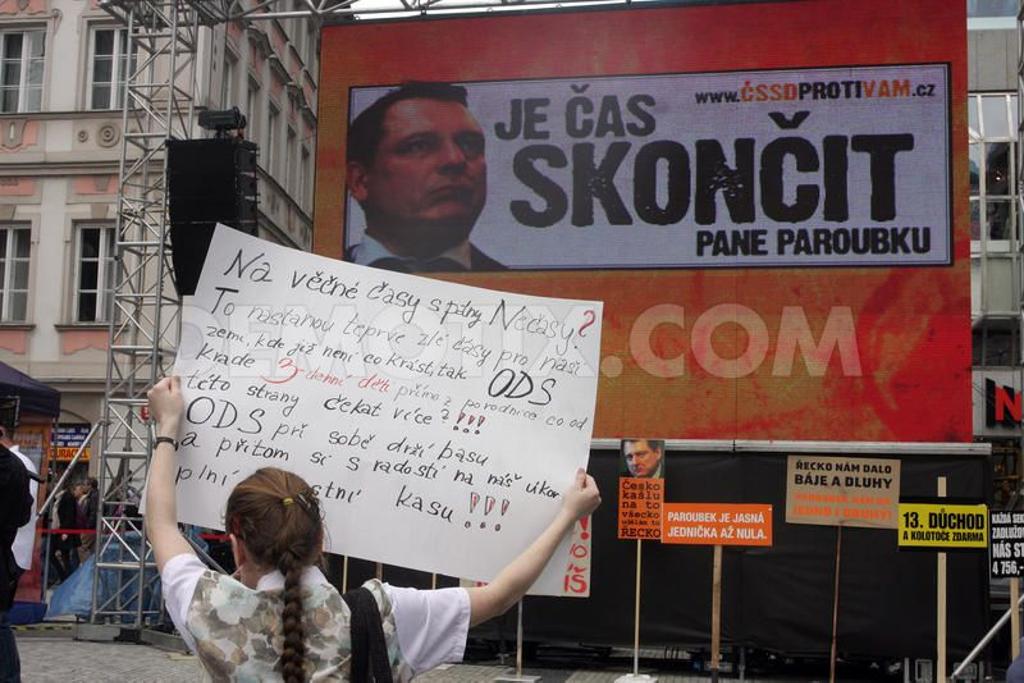 www.ČSSDPROTIVAM.cz
JE ČAS
SKONČIT
PANE PAROUBKU
Na věčné časy s pány Nečasy?
To nastanou teprve zlé časy pro naši
zemi, kde již není co krást, tak ODS
krade 3 denní děti přímo z porodnice co od
této strany čekat více? !!!
ODS při sobě drží basu
a přitom si s radostí na náš úkor
plní kasu !!!
DEMOTIX.COM
Česko
kašlu
na to
všecko
udělám to
ŘECKO
PAROUBEK JE JASNÁ
JEDNIČKA AŽ NULA.
ŘECKO NÁM DALO
BÁJE A DLUHY
13. DŮCHOD
A KOLOTOČE ZDARMA
KAŽDÁ
ZADLUŽ
NÁS ST
4 756,-
N